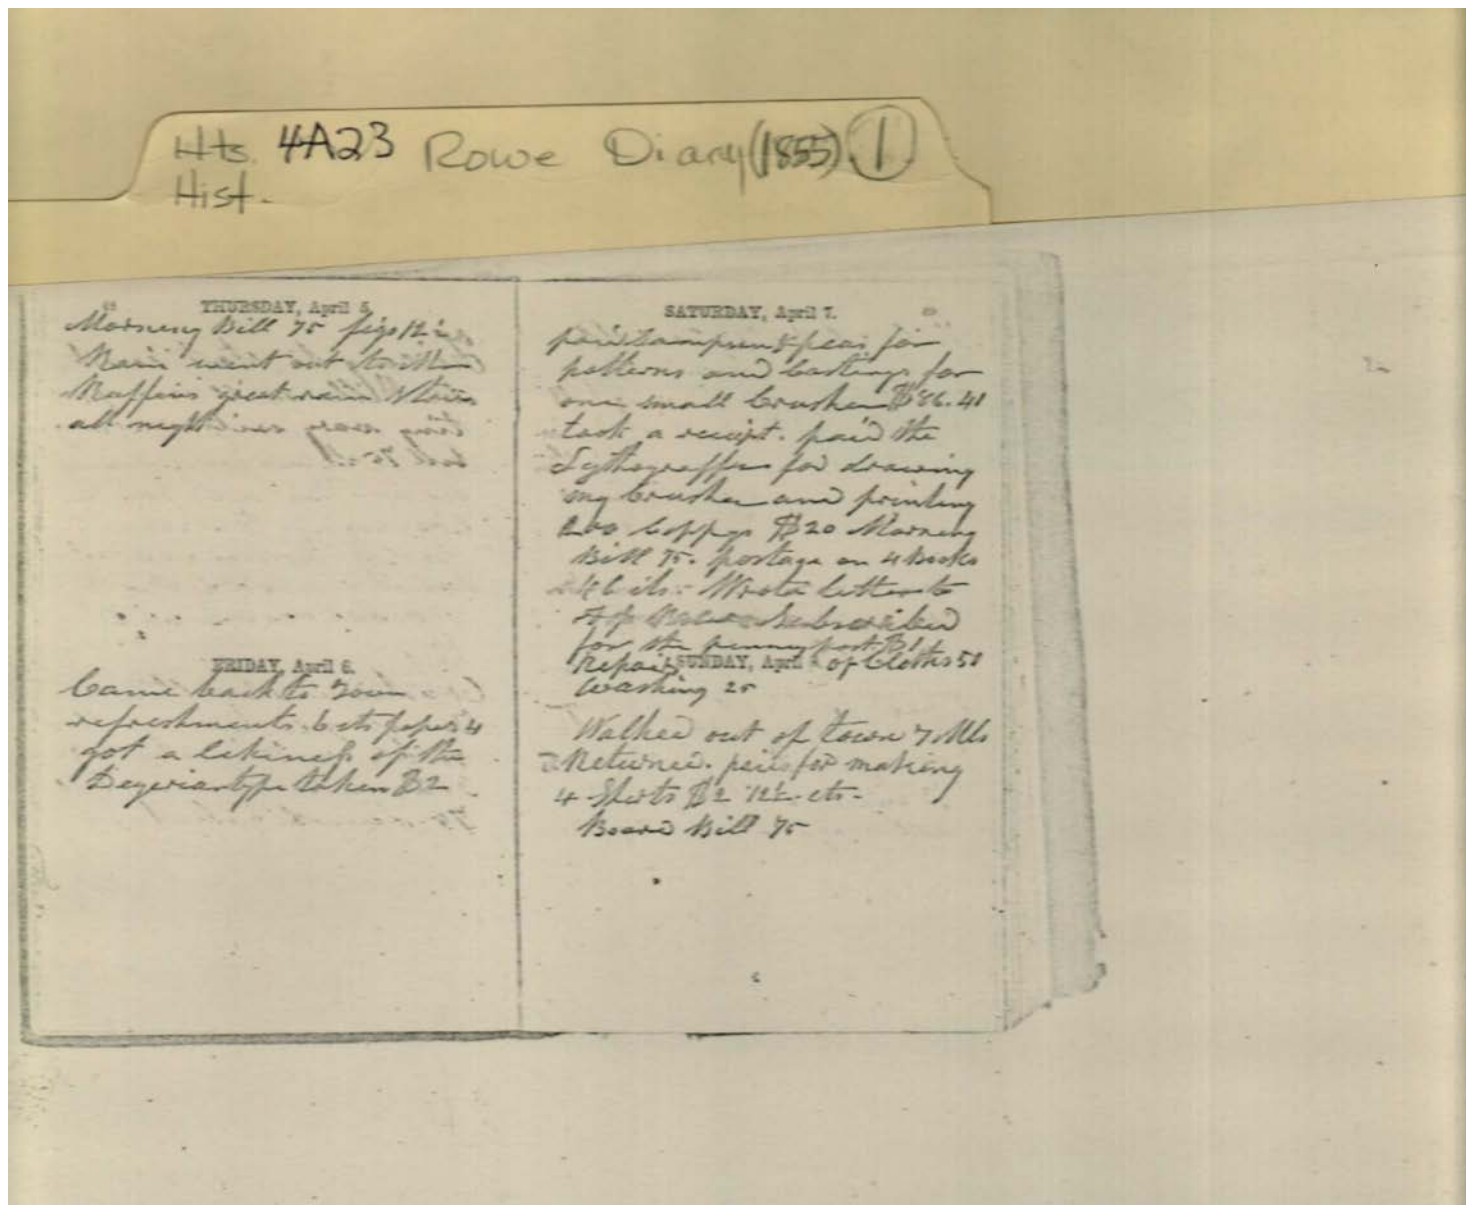 Hts. 4A23 Rowe Diary (1855) 1
Hist.
THURSDAY, April 5.
Morneng Bill 75 figs 12½
Rain went out to
great rain
all night
FRIDAY, April 6.
Came back to Town
refreshments 6 cts paper 4
got a likiness of the
taken $2
SATURDAY, April 7.
paid for
patterns and Castings for
one small Crusher $86.41
took a receipt. paid the
for drawing
my Crusher and printing
Coppys $20 Morneng
Bill 75. postage on 4 Books
Wrote letter to
Subscribed
for the pennypost $1
Repairs SUNDAY, April of Cloths 50
Washing 25
Walked out of town 7 Mls
Returned. paid for making
4 Shirts $2 12½ cts.
Board Bill 75